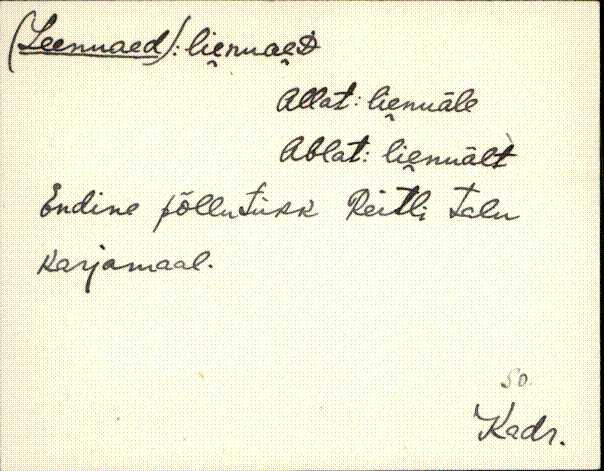 (Leenuaed): li̮e̮nuae̮d
Allat: lie̮nuäle
Ablat: lie̮nuält
Endine põllutükk Reitli talu
karjamaal.
So.
Kadr.